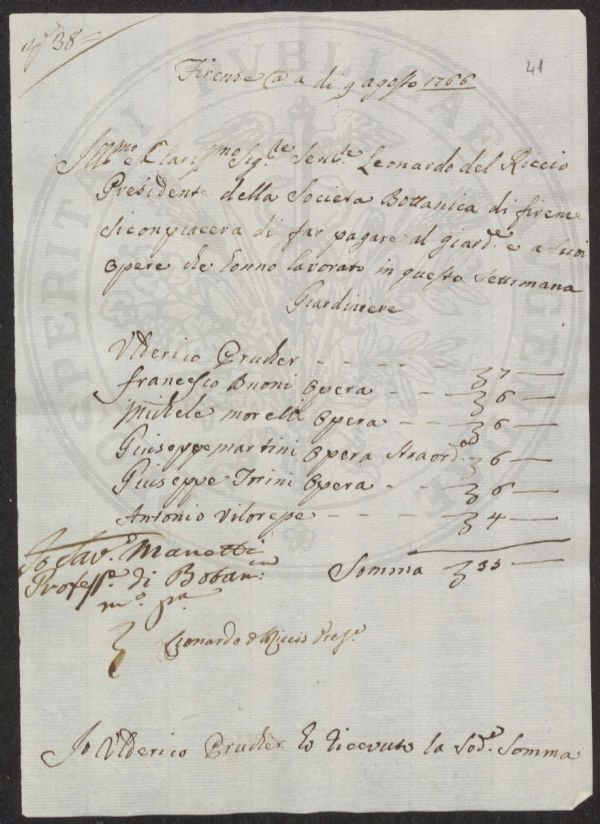 38
41
Firenze a di 9 agosto 1766
Ill.mo e Clariss.mo Sig.re Sen.re Leonardo del Riccio
Presidente della Societa Bottanica di firenze
si conpiacera di far pagare al giard.e e a suoi
opere che hanno lavorato in questa settimana
Giardiniere
Ulderico Prucker 7
francesco Buoni opera 6
Michele morelli opera 6
Giuseppe martini opera straord. 6
Giuseppe Trini opera 6
Antonio 4
Io Sav. Manetti
Profess.e di Botan.
m.o p.a
Somma 35
Leonardo d Riccio Pres.e
Io Ulderico Prucker ho ricevuto la sod.a Somma